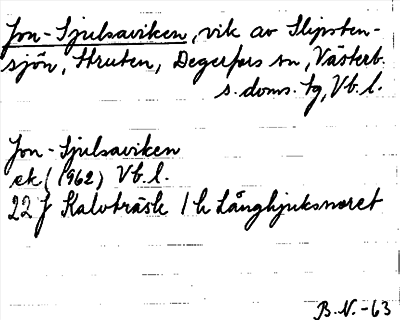 Jon-Sjulsaviken, vik av Slipsten-
sjön, Struten, Degerfors sn, Västerb.
s. doms. tg, Vb. l.
Jon-Sjulsaviken
ek (1962) Vb. l.
22 J Kalvträsk 1 h Långhjuksnäret
B.N.-63